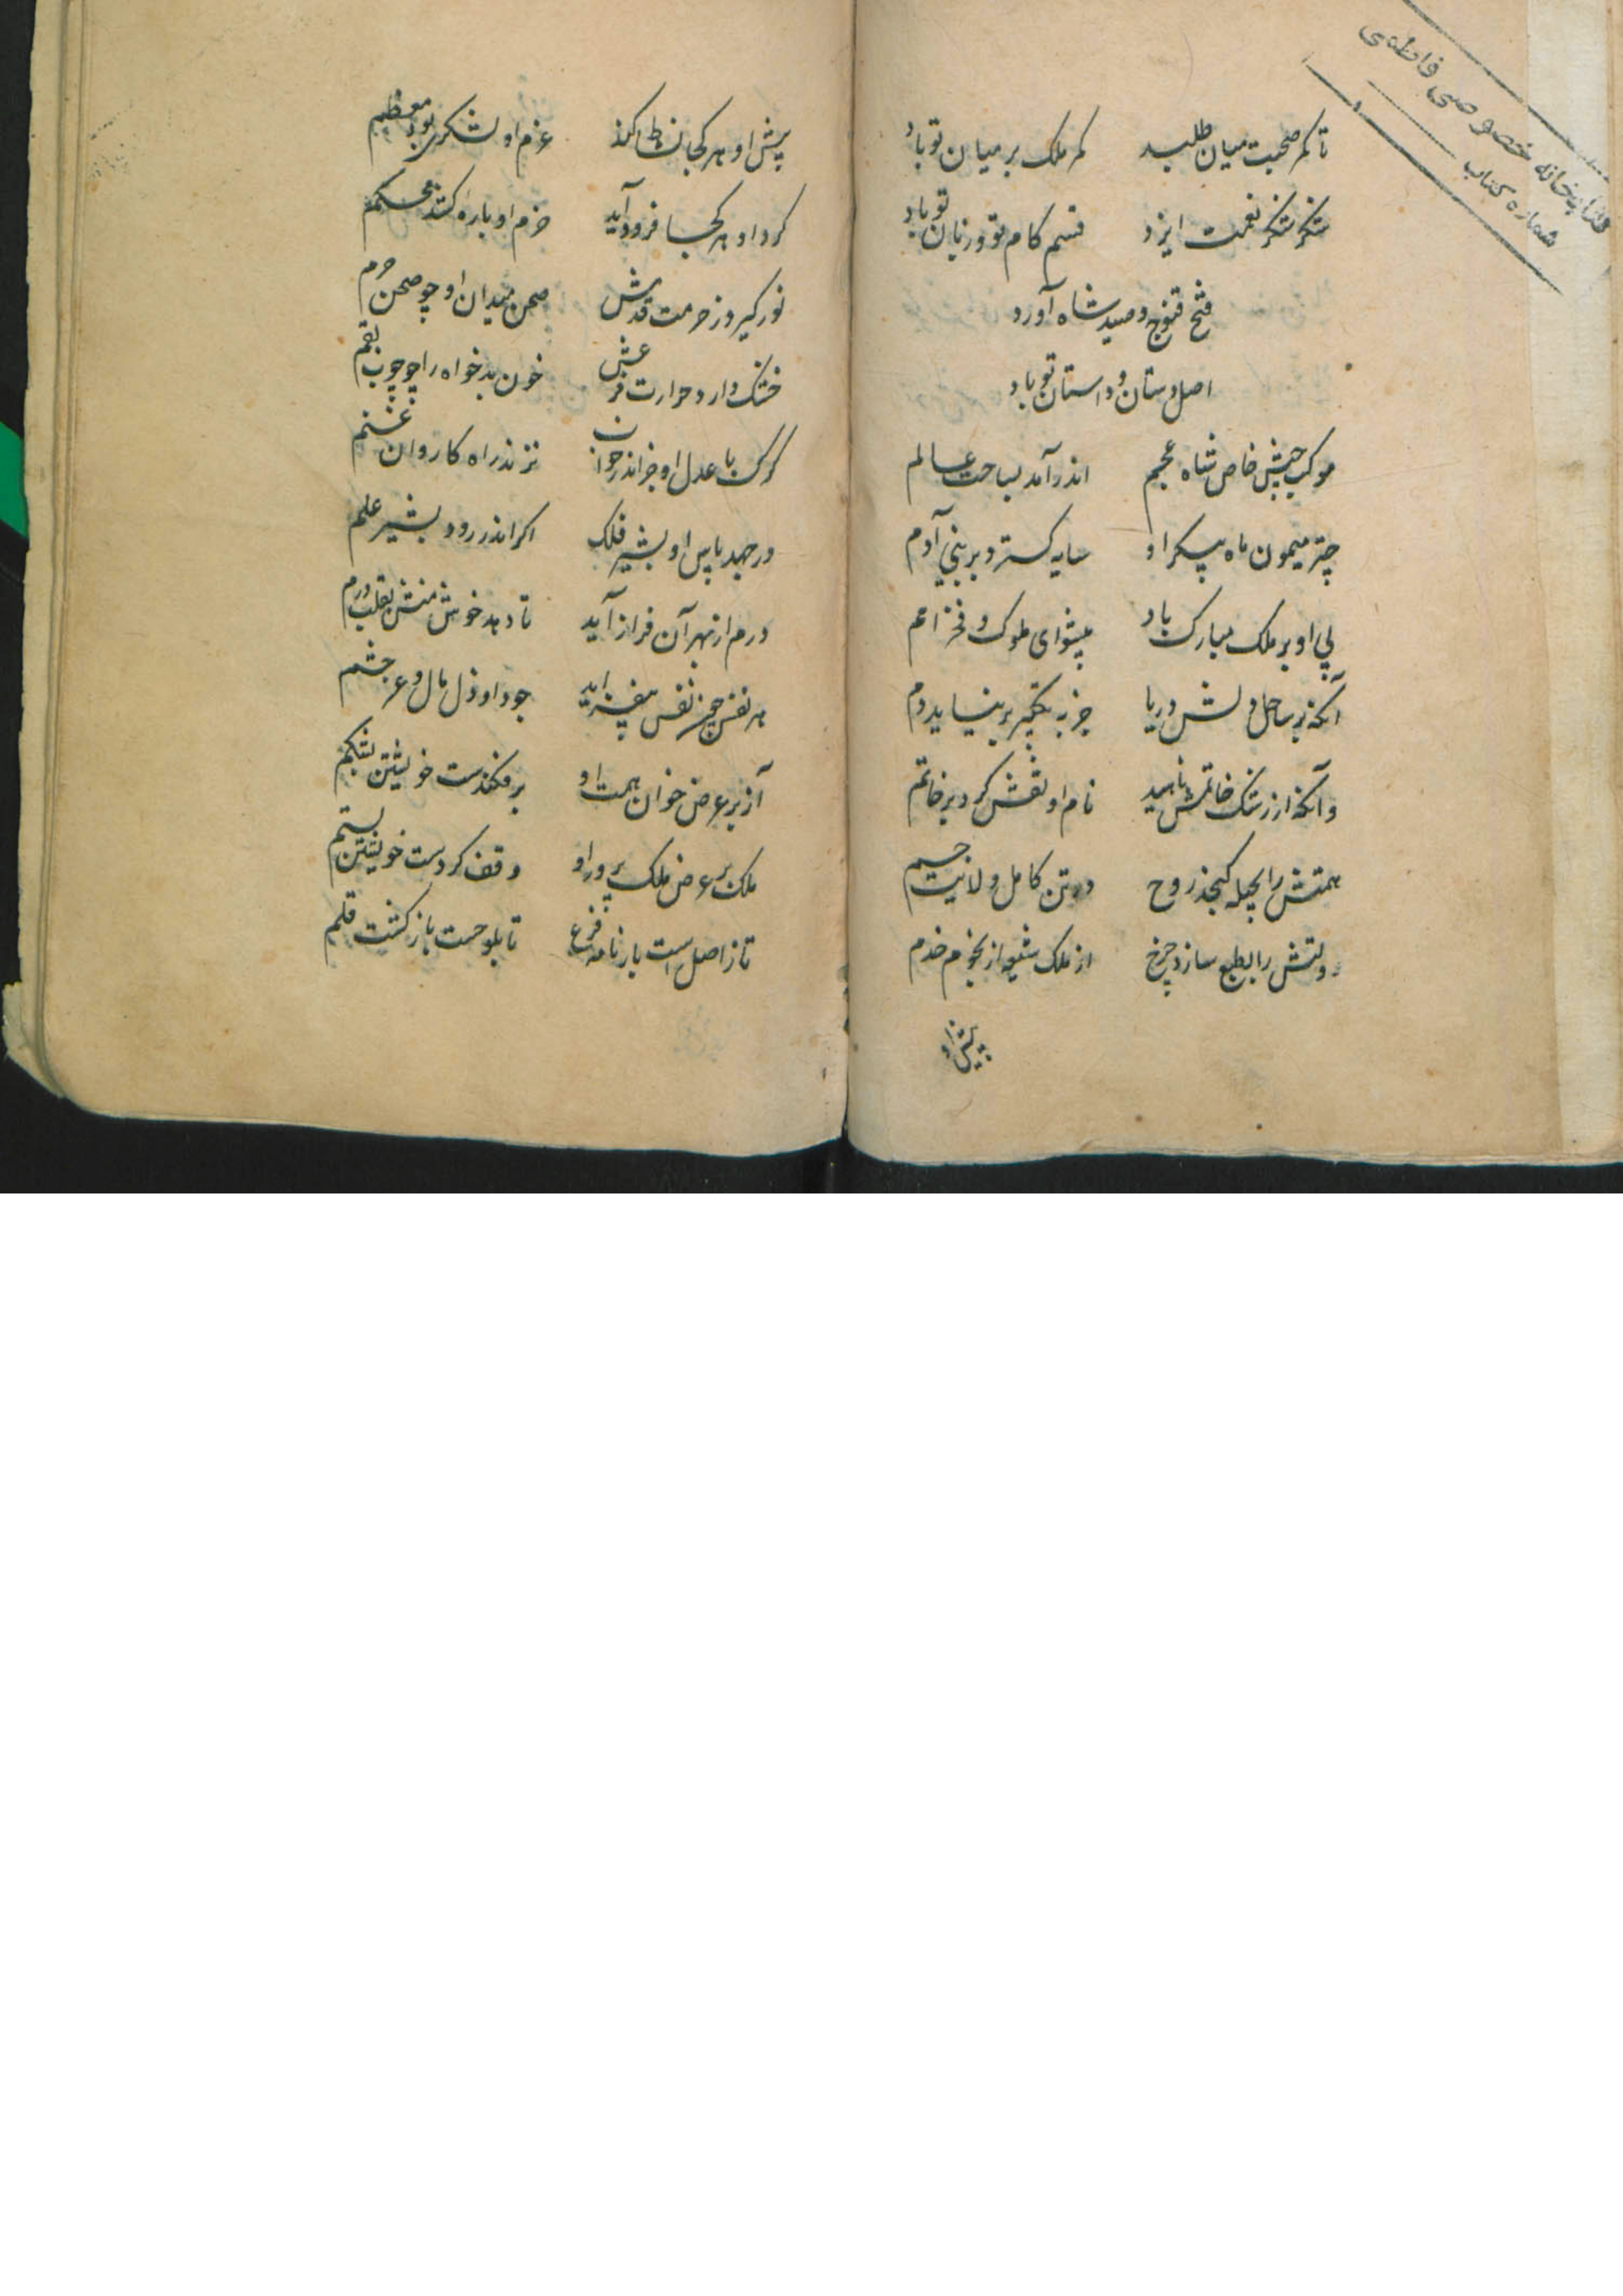 کتابخانه خصوصی فاطمی
شماره کتاب
تا کمر صحبت میان طلبد کمر ملک بر میان تو باد
شکر شکر نعمت ایزد قسم کام تو و زبان تو باد
فتح قنوج و صید شاه آورد
اصل دستان و داستان تو باد
موکب جیش خاص شاه عجم اندر آمد بساحت عالم
چتر میمون ماه پیکر او سایه گسترد بر بنی آدم
پی او بر ملک مبارک باد پیشوای ملوک و فخر امم
آنکه بر ساحل دلش دریا جز به تکبیر بر نیاید دم
وانکه از رشک خاتمش ناهید نام او نقش کرد بر خاتم
همتش را بحیله گنجد روح در تن کامل ولانیت جسیم
دولتش را بطبع سازد چرخ از ملک شیعه از نجوم خدم
پیش او
پیش او هر کجا نشاط کند عزم او لشکری بود معظم
گرد او هر کجا فرود آید حزم او باره کشد محکم
نور گیرد ز حرمت قدمش صحن میدان او چو صحن حرم
خشک دارد حرارت فزعش خون بدخواه را چو چوب بقم
گرگ با عدل او جز اندر خواب نزند راه کاروان غنم
در جهد باس او بشیر فلک اگر اندر رود بشیر علم
درم از بهر آن فراز آید تا دهد خوش منش بقلب درم
هر نفس جز نفس نیفزاید جود او ذل مال و عز حشم
آز بر عرض خوان همت او بر فکندست خویشتن بشکم
ملک بر عرض ملک پرور او وقف کردست خویشتن بستم
تا ز اصل است بار نامه فرع تا بلوحست بازگشت قلم